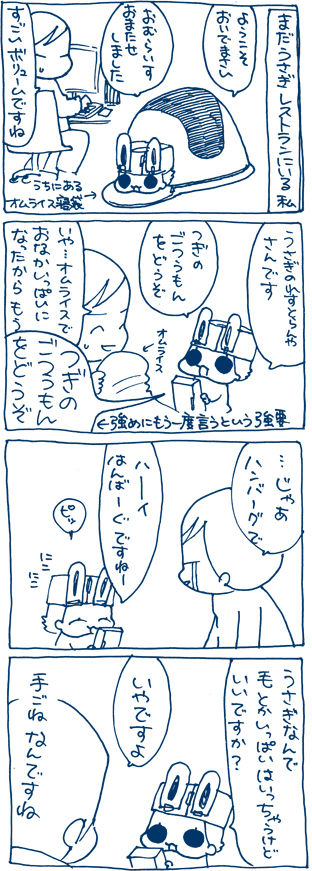 まだうさぎ
レストランにいる
私
ようこそ
おいでまさい
おむらいす
おまたせ
しました
すっごいボリュームですね
うちにある
オムライス寝袋
うさぎのれすとらんや
さんです
つぎの
ごつうもん
をどうぞ
オムライス
いや…オムライスで
おなかいっぱいに
なったからもう
つぎの
ごつうもん
をどうぞ
←強めにもう一度言うという強要
…じゃあ
ハンバーグで
ハーイ
はんばーぐですねー
ピッ
にこ
にこ
うさぎなんで
毛とかいっぱいはいっちゃうけど
いいですか？
いやですよ
手ごねなんですね